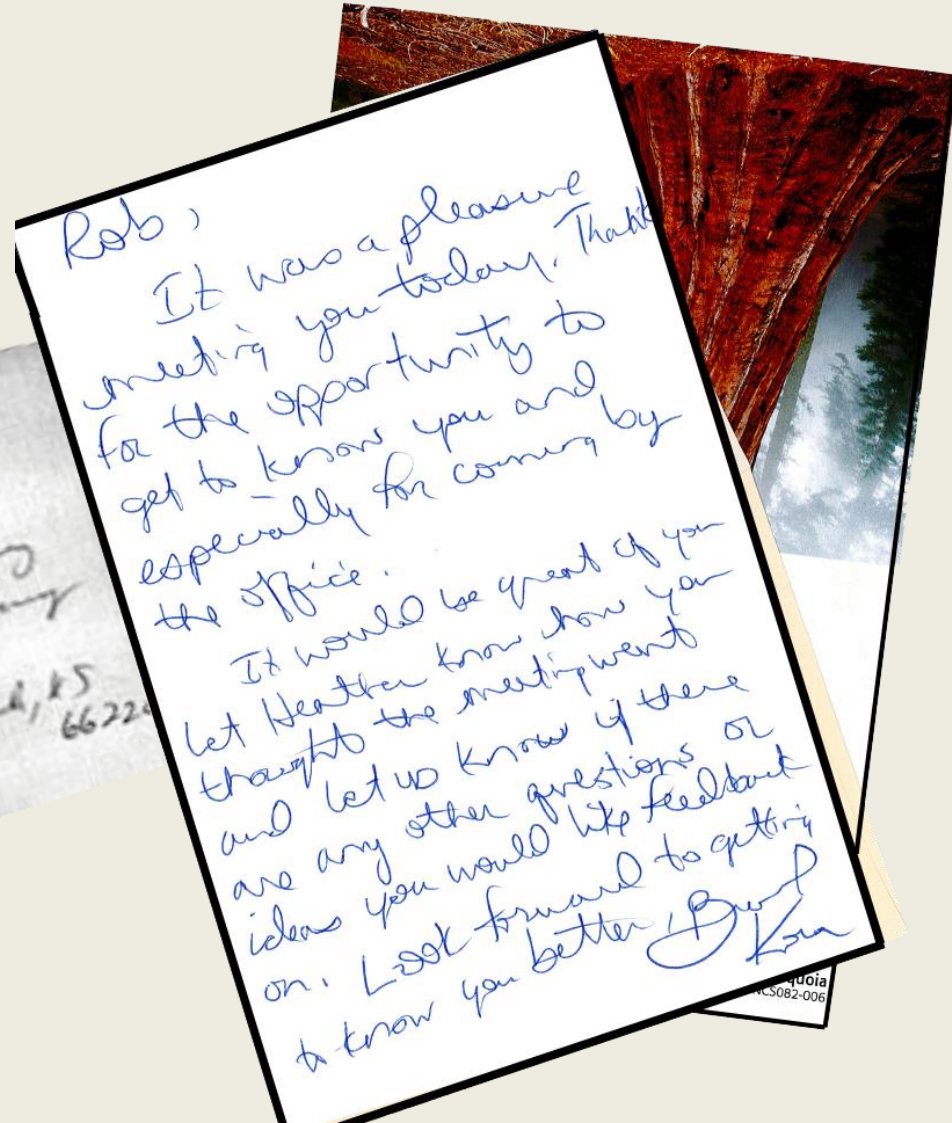 Rob,
It was a pleasure
meeting you today. Thank
for the opportunity to
get to know you and
especially for coming by
the office.
It would be great if you
let Heather know how you
thought the meeting went
and let us know if there
are any other questions or
ideas you would like feedback
on. Look forward to getting
to know you better,
KS
6622
quoia
CS082-006